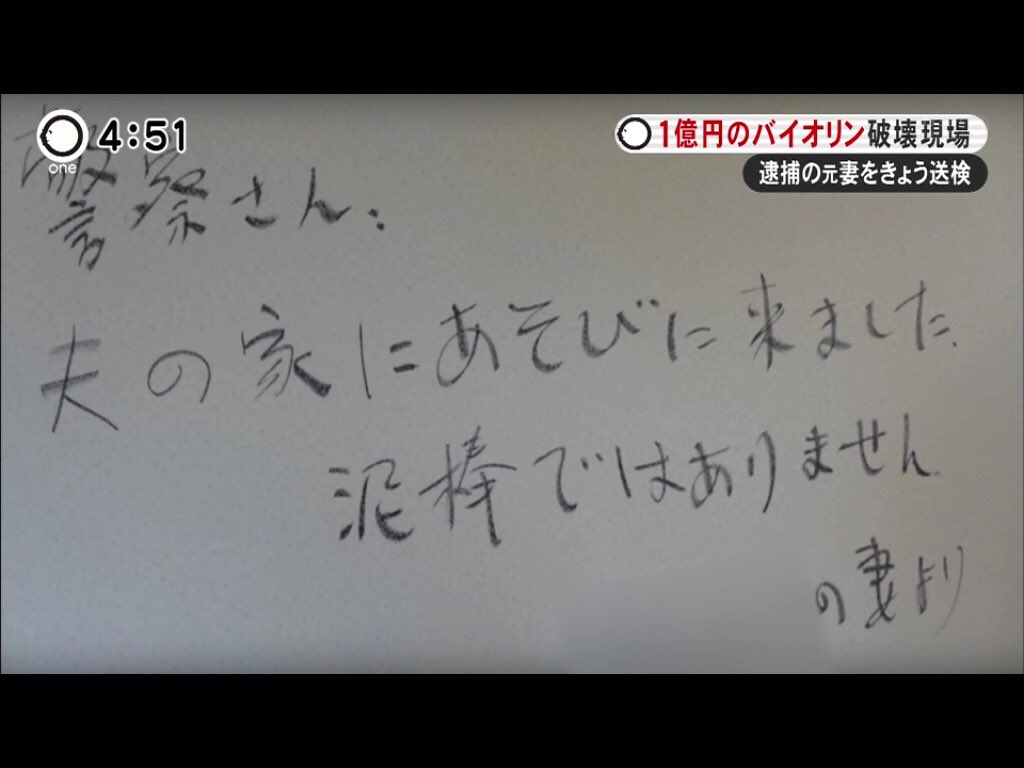 one
4:51
1億円のバイオリン破壊現場
逮捕の元妻をきょう送検
警察さん、
夫の家にあそびに来ました
泥棒ではありません
の妻より